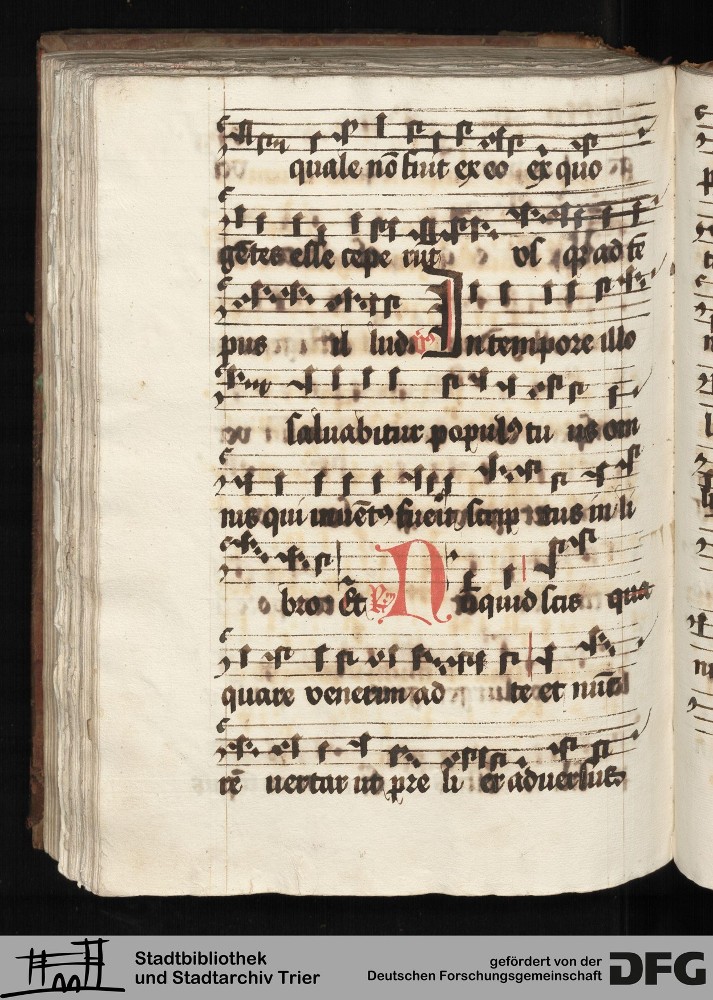 quale nõ fuit ex eo ex quo
gẽtes esse cepe rũt vsq̃ ad tẽ
pus il lud In tempore illo
saluabitur popul9 tu us om
nis qui inuẽt9 fuerit script tus in li
bro Et Nũquid scis qua
quare venerim ad te et nũc
re uertar ut pre li er aduersus
Stadtbibliothek
und Stadtarchiv Trier
gefördert von der
Deutschen Forschungsgemeinschaft
DFG